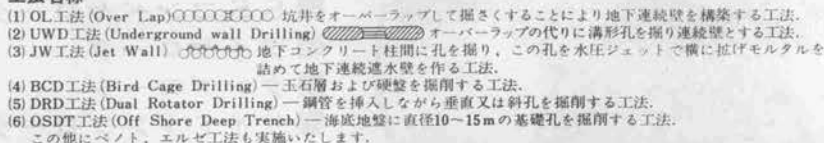 (1) OL工法(Over Lap) 坑井をオーバーラップして掘さくすることにより地下連続壁を構築する工法.
(2) UWD工法(Underground wall Drilling) オーバーラップの代りに溝形孔を掘り連続壁とする工法.
(3) JW工法(Jet Wall) 地下コンクリート柱間に孔を掘り、この孔を水圧ジェットで横に拡げモルタルを
詰めて地下連続遮水壁を作る工法.
(4) BCD工法(Bird Cage Drilling)―玉石層および硬盤を掘削する工法.
(5) DRD工法(Dual Rotator Drilling)―鋼管を挿入しながら垂直又は斜孔を掘削する工法.
(6) OSDT工法(Off Shore Deep Trench)―海底地盤に直径10〜15mの基礎孔を掘削する工法.
この他にベノト、エルゼ工法も実施いたします.